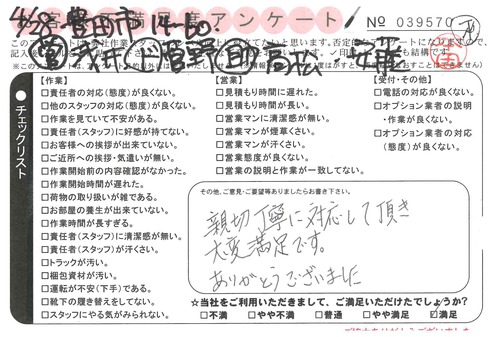 アンケート
No 039570
チェックリスト
【作業】
□責任者の対応(態度)が良くない。
□他のスタッフの対応(態度)が良くない。
□作業を見ていて不安がある。
□責任者(スタッフ)に好感が持てない。
□お客様への挨拶が出来ていない。
□ご近所への挨拶・気遣いが無い。
□作業開始前の内容確認がなかった。
□作業開始時間が遅れた。
□荷物の取り扱いが雑である。
□お部屋の養生が出来ていない。
□作業時間が長すぎる。
□責任者(スタッフ)に清潔感が無い。
□責任者(スタッフ)が汗くさい。
□トラックが汚い。
□梱包資材が汚い。
□運転が不安(下手)である。
□靴下の履き替えをしてない。
□スタッフにやる気がみられない。
【営業】
□見積もり時間に遅れた。
□見積もり時間が長い。
□営業マンに清潔感が無い。
□営業マンが煙草くさい。
□営業マンが汗くさい。
□営業態度が良くない。
□営業の説明と作業が一致してない。
【受付・その他】
□電話の対応が良くない。
□オプション業者の説明
・作業が良くない。
□オプション業者の対応
(態度)が良くない。
その他、ご意見・ご要望等ありましたらお書き下さい。
親切丁寧に対応して頂き
大変満足です。
ありがとうございました
☆当社をご利用いただきまして、ご満足いただけたでしょうか?
□不満 □やや不満 □普通 □やや満足 ☑満足